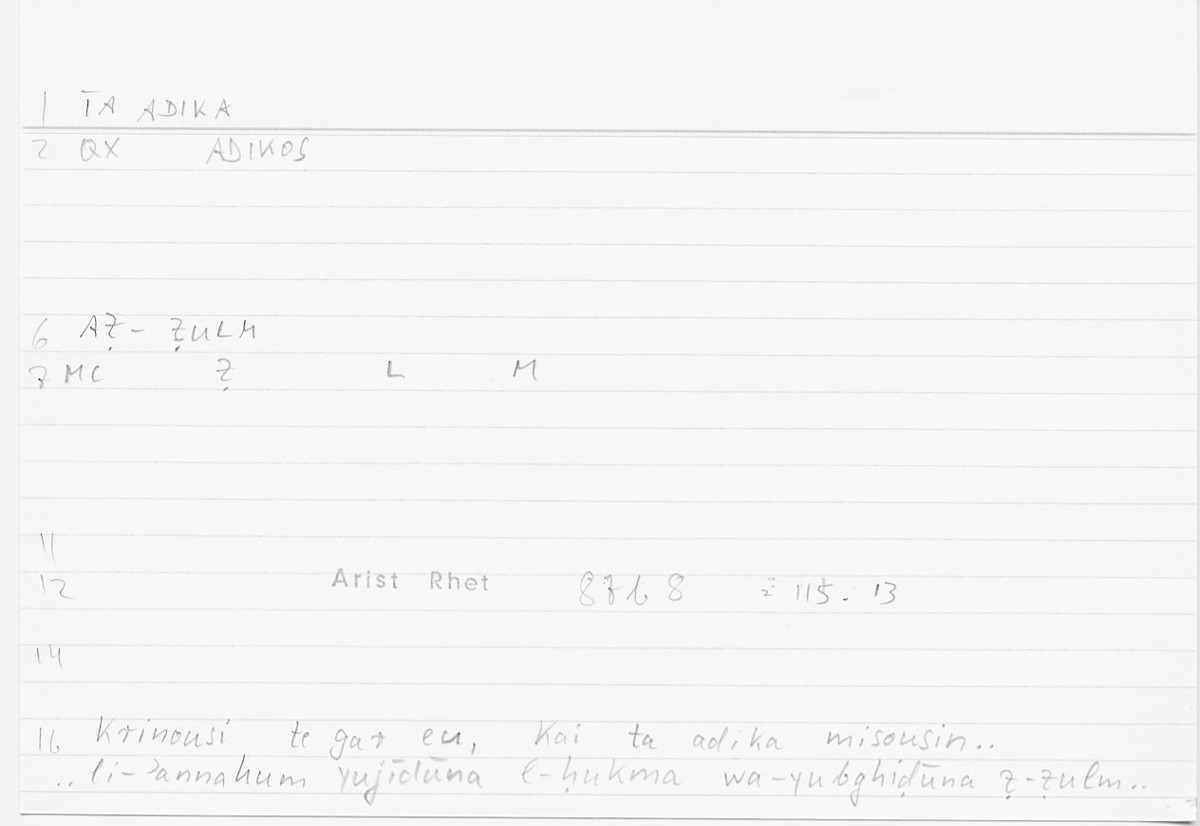 1 TA ADIKA
2 QX ADIKOS
6 AẒ- ẒULM
7 MC Ẓ L M
11
12 Arist Rhet 87b8 = 115.13
14
16 Krinousi te gar eu, kai ta adika misousin..
..li-ʾannahum yujīdūna l-ḥukma wa-yubghiḍūna ẓ-ẓulm..